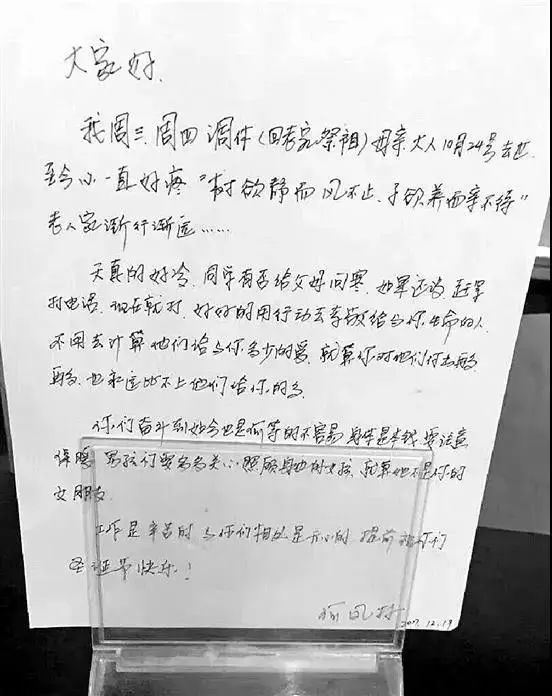 大家好.
我周三.周四调休(回老家祭祖)母亲大人10月24号去世
至今心一直好疼"树欲静而风不止.子欲养而亲不待"
老人家渐行渐远……
天真的好冷.同学有否给父母问寒.如果还没 赶紧
打电话.现在就打.好好的用行动去孝敬给与你生命的人.
不用去计算他们给与你多少的爱.就算你对他们付出再多
再多.也永远比不上他们给你的多.
你们奋斗到如今也是何等的不容易 身体是本钱.要注意
保暖 男孩们要多多关心照顾身边的女孩.就算她不是你的
女朋友.
工作是辛苦的 与你们相处是开心的 提前祝你们
圣诞节快乐!
2017.12.19